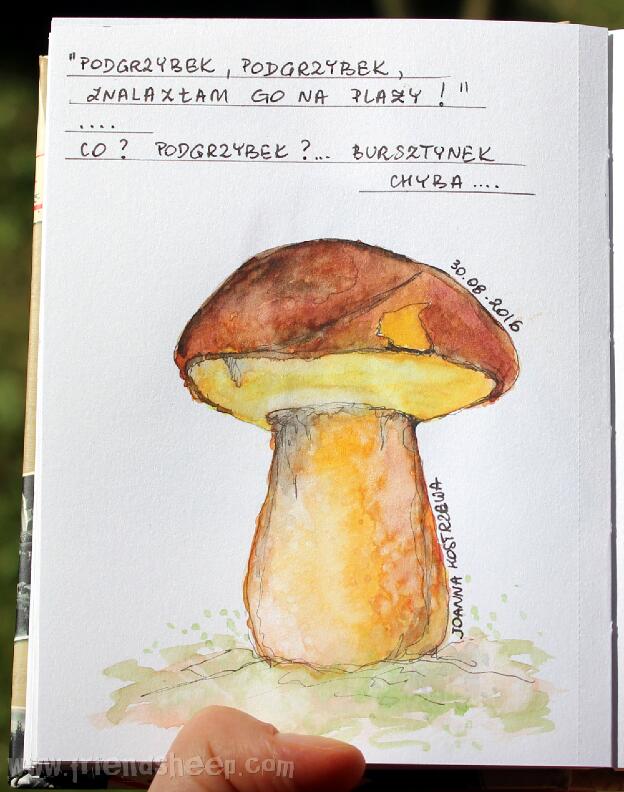 "PODGRZYBEK, PODGRZYBEK,
ZNALAZŁAM GO NA PLAŻY!"
....
CO? PODGRZYBEK?... BURSZTYNEK
CHYBA....
30.08.2016
JOANNA KOSTRZEWA
www.friendsheep.com